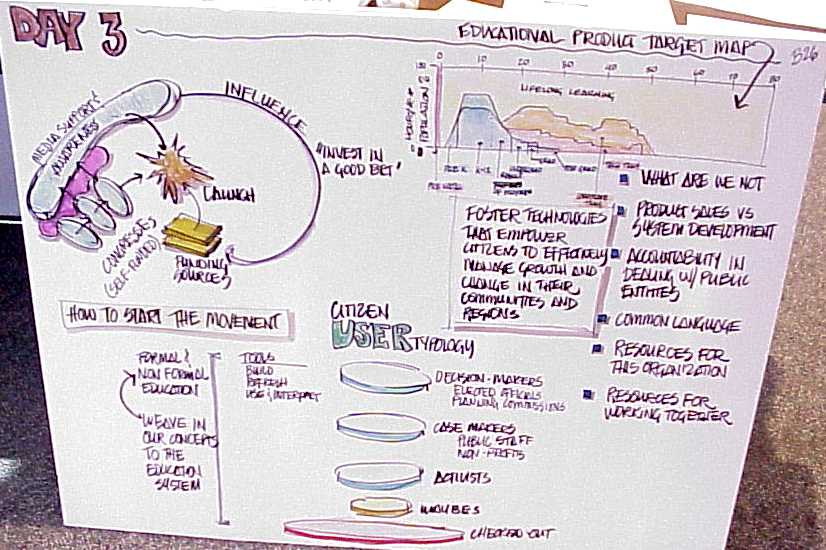 DAY 3
EDUCATIONAL PRODUCT TARGET MAP
326
MEDIA SUPPORTS
AWARENESS
INFLUENCE
"INVEST IN
A GOOD BET"
LAUNCH
CONGRESSES
(SELF-FUNDED)
FUNDING
SOURCES
POPULATION
0
10
20
30
40
50
60
70
80
LIFELONG LEARNING
PRE K
K-12
FOSTER TECHNOLOGIES
THAT EMPOWER
CITIZENS TO EFFECTIVELY
MANAGE GROWTH AND
CHANGE IN THEIR
COMMUNITIES AND
REGIONS
WHAT ARE WE NOT
PRODUCT SALES VS
SYSTEM DEVELOPMENT
ACCOUNTABILITY IN
DEALING W/ PUBLIC
ENTITIES
COMMON LANGUAGE
RESOURCES FOR
THIS ORGANIZATION
RESOURCES FOR
WORKING TOGETHER
HOW TO START THE MOVEMENT
FORMAL &
NON FORMAL
EDUCATION
WEAVE IN
OUR CONCEPTS
TO THE
EDUCATION
SYSTEM
TOOLS
BUILD
REFRESH
USE & INTERPRET
CITIZEN
USER TYPOLOGY
DECISION-MAKERS
ELECTED OFFICIALS
PLANNING COMMISSIONS
CASE MAKERS
PUBLIC STAFF
NON-PROFITS
ACTIVISTS
MAYBES
CHECKED OUT